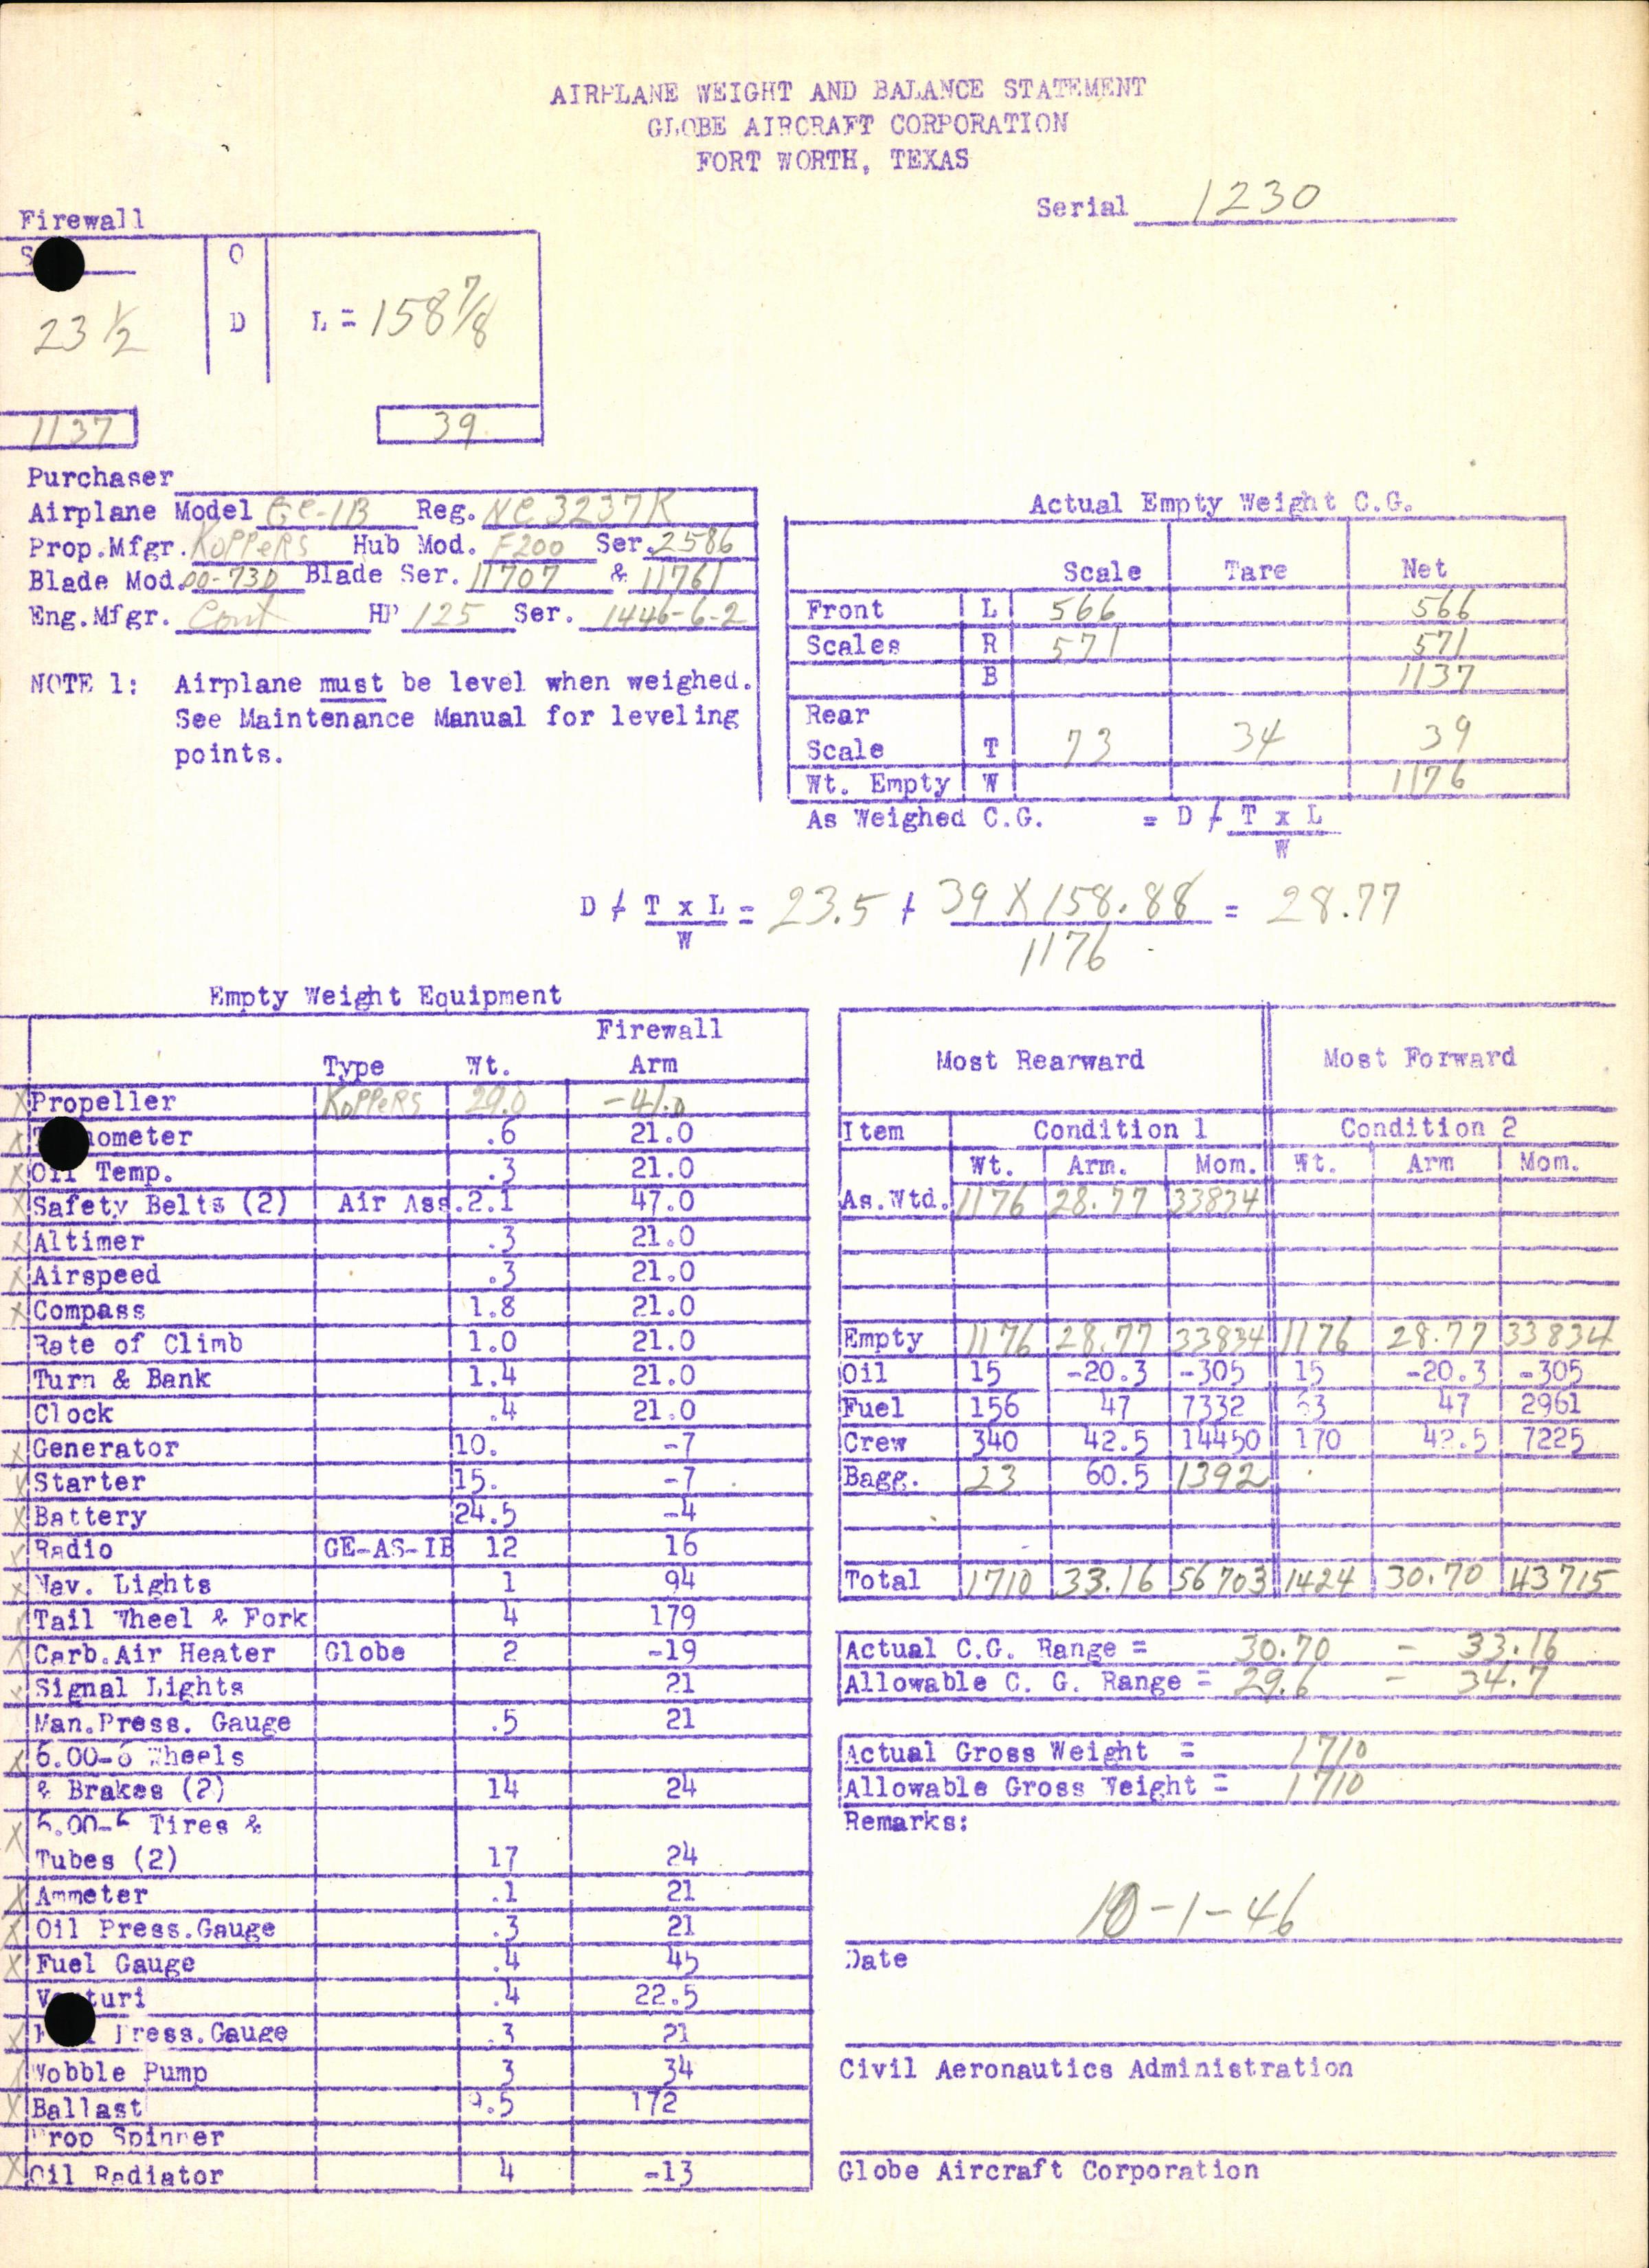 AIRPLANE WEIGHT AND BALANCE STATEMENT
GLOBE AIRCRAFT CORPORATION
FORT WORTH, TEXAS
Serial 1230
Firewall
O
23 1/2 D L = 158 7/8
1137 39
Purchaser
Airplane Model GC-1B Reg. NC3237K
Prop.Mfgr. KOPPERS Hub Mod. F200 Ser. 2586
Blade Mod. 00-73D Blade Ser. 11707 & 11761
Eng.Mfgr. Cont HP 125 Ser. 1446-6-2
NOTE 1: Airplane must be level when weighed.
See Maintenance Manual for leveling
points.
Actual Empty Weight C.G.
Scale Tare Net
Front L 566 566
Scales R 571 571
B 1137
Rear
Scale T 73 34 39
Wt. Empty W 1176
As Weighed C.G. = D + T x L
W
D + T x L = 23.5 + 39 X 158.88 = 28.77
W 1176
Empty Weight Equipment
Firewall
Type Wt. Arm
X Propeller KOPPERS 29.0 -41.0
X ometer .6 21.0
X Oil Temp. .3 21.0
X Safety Belts (2) Air Ass. 2.1 47.0
X Altimer .3 21.0
X Airspeed .3 21.0
X Compass 1.8 21.0
Rate of Climb 1.0 21.0
Turn & Bank 1.4 21.0
Clock .4 21.0
X Generator 10. -7
X Starter 15. -7
X Battery 24.5 -4
X Radio GE-AS-1B 12 16
X Nav. Lights 1 94
X Tail Wheel & Fork 4 179
X Carb.Air Heater Globe 2 -19
X Signal Lights 21
Man.Press. Gauge .5 21
X 6.00-6 Wheels
& Brakes (2) 14 24
X 6.00-6 Tires &
Tubes (2) 17 24
X Ammeter .1 21
X Oil Press.Gauge .3 21
X Fuel Gauge .4 45
Venturi .4 22.5
X Press.Gauge .3 21
X Wobble Pump 3 34
X Ballast 9.5 172
Prop Spinner
X Oil Radiator 4 -13
Most Rearward Most Forward
Item Condition 1 Condition 2
Wt. Arm. Mom. Wt. Arm Mom.
As.Wtd. 1176 28.77 33834
Empty 1176 28.77 33834 1176 28.77 33834
Oil 15 -20.3 -305 15 -20.3 -305
Fuel 156 47 7332 63 47 2961
Crew 340 42.5 14450 170 42.5 7225
Bagg. 23 60.5 1392
Total 1710 33.16 56703 1424 30.70 43715
Actual C.G. Range = 30.70 - 33.16
Allowable C. G. Range = 29.6 - 34.7
Actual Gross Weight = 1710
Allowable Gross Weight = 1710
Remarks:
10-1-46
Date
Civil Aeronautics Administration
Globe Aircraft Corporation